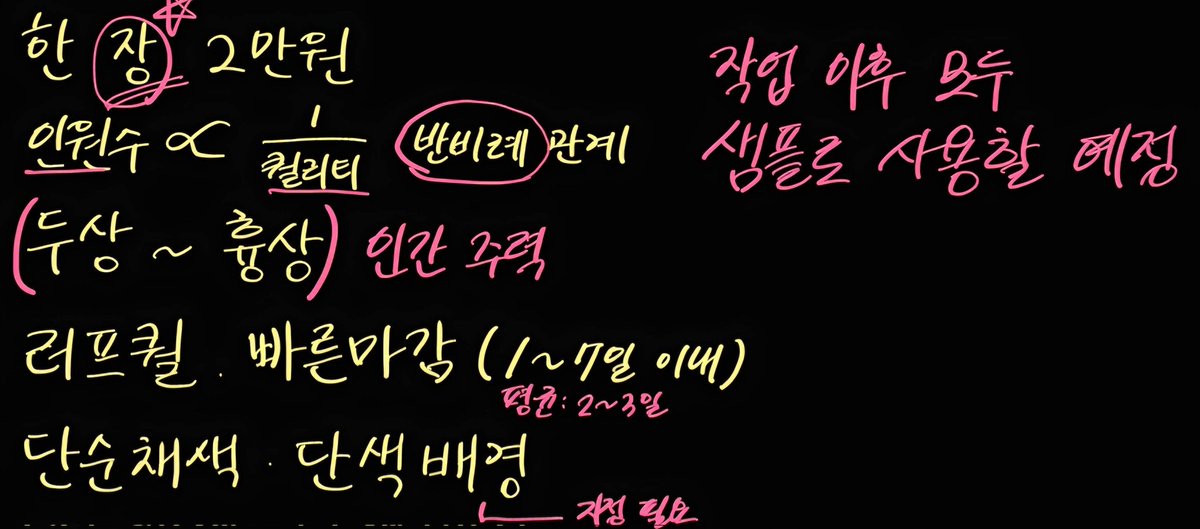 한 장 2만원
인원수 ∝ 1/퀄리티 반비례 관계
(두상 ~ 흉상) 인간 주력
러프퀄. 빠른마감 (1~7일 이내)
평균: 2~3일
단순채색. 단색배경
지정 필요
작업 이후 모두
샘플로 사용할 예정